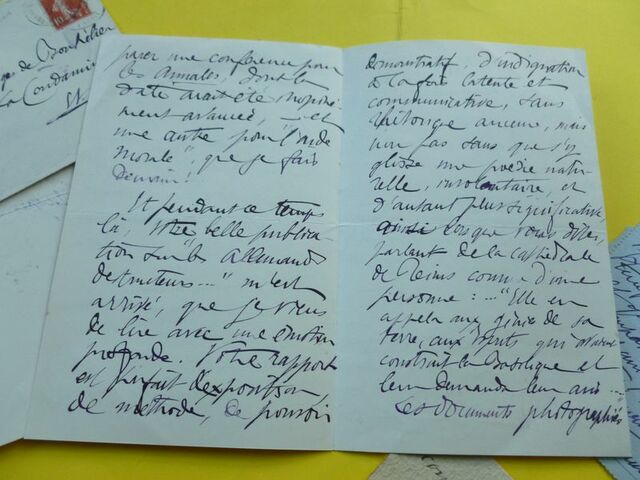 de Bouhélier
La Condamine
parer une conférence pour
les Annales, dont la
date avait été inopiné
ment avancée, — et
une autre pour "l'aide
morale", que je fais
demain!
Et pendant ce temps
là, votre belle publica
tion sur "les allemands
destructeurs..." m'est
arrivée, que je viens
de lire avec une émotion
profonde. Votre rapport
est parfait d'exposition,
de méthode, de pouvoir
démonstratif, d'indignation
à la fois latente et
communicative, sans
rhétorique aucune, mais
non pas sans que s'y
glisse une poésie natu-
relle, involontaire, et
d'autant plus significative,
ainsi lorsque vous dites,
parlant de la cathédrale
de Reims comme d'une
personne: ... "Elle en
appela aux génies de sa
terre, aux esprits qui avaient
construit la Basilique et
leur demanda leur avis ..."
Les documents photographiés